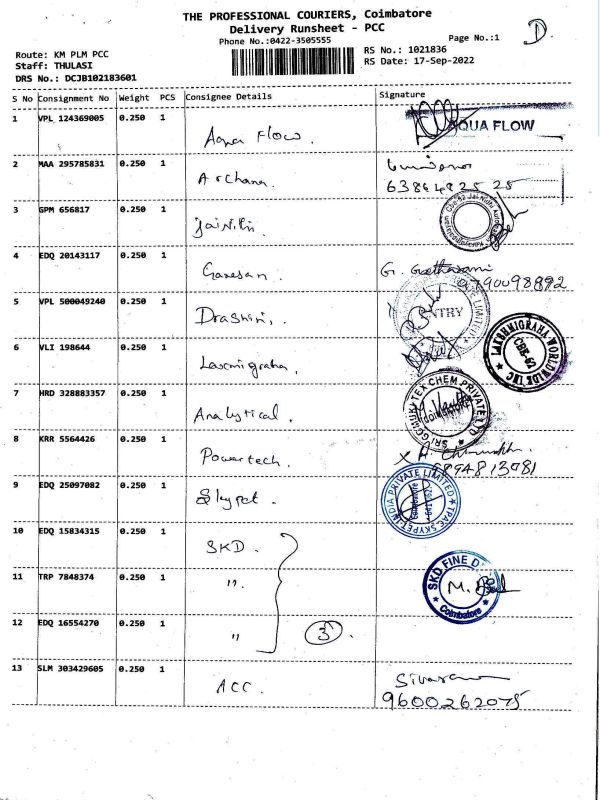 THE PROFESSIONAL COURIERS, Coimbatore
Delivery Runsheet - PCC
Phone No.:0422-3505555
Page No.:1
D
Route: KM PLM PCC
RS No.: 1021836
Staff: THULASI
RS Date: 17-Sep-2022
DRS No.: DCJB102183601
S No Consignment No Weight PCS Consignee Details Signature
1 VPL 124369005 0.250 1 Aqua Flow. AQUA FLOW
2 MAA 295785831 0.250 1 Archana.
3 GPM 656817 0.250 1 Jai Nidhi.
4 EDQ 20143117 0.250 1 Ganesan G. Geetharani
9790098892
5 VPL 500049240 0.250 1 Drashini. ENTRY
6 VLI 198644 0.250 1 Laxmigraha. LAKSHMIGRAHA WORLDWIDE INC CBE-62
7 HRD 328883357 0.250 1 Analytical. TEX CHEM PRIVATE LTD
8 KRR 5564426 0.250 1 Powertech.
9894813981
9 EDQ 25097082 0.250 1 Skypet. TPAC SKYPET INDIA PRIVATE LIMITED
10 EDQ 15834315 0.250 1 SKD.
11 TRP 7848374 0.250 1 " SKD FINE Coimbatore
M.
12 EDQ 16554270 0.250 1 " 3
13 SLM 303429605 0.250 1 ACC.
9600262075